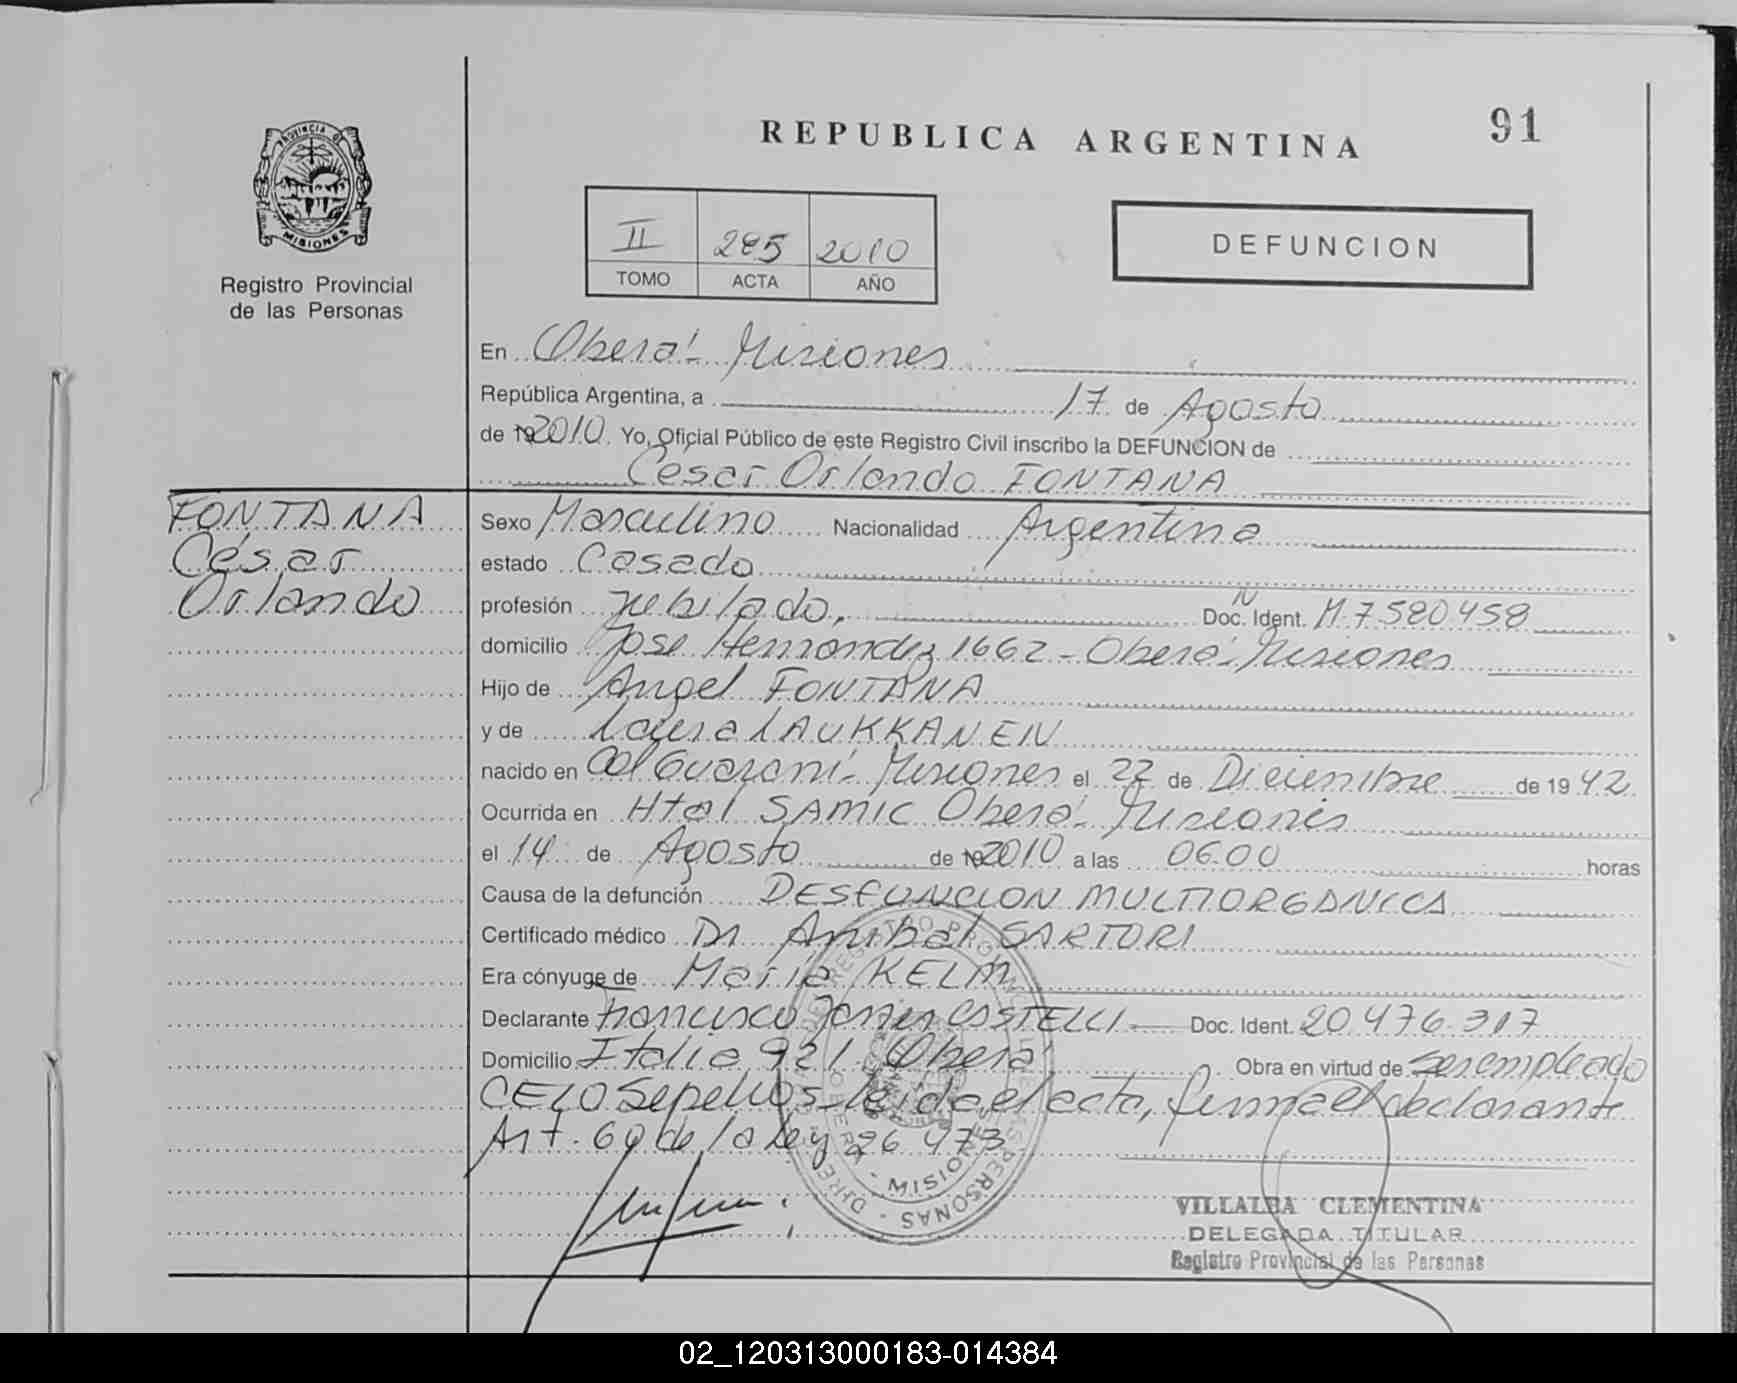 REPUBLICA ARGENTINA
91
PROVINCIA DE
MISIONES
Registro Provincial
de las Personas
II 285 2010
TOMO ACTA AÑO
DEFUNCION
En Oberá - Misiones
República Argentina, a 17 de Agosto
de 192010. Yo, Oficial Público de este Registro Civil inscribo la DEFUNCION de
César Orlando FONTANA
FONTANA
César
Orlando
Sexo Masculino Nacionalidad Argentina
estado Casado
profesión Jubilado, Doc. Ident. M. 7.580.458
domicilio Jose Hernandez 1662 - Oberá - Misiones
Hijo de Angel FONTANA
y de Laura LAUKKANEN
nacido en Col Guaraní - Misiones el 22 de Diciembre de 1942
Ocurrida en Htal SAMIC Oberá - Misiones
el 14 de Agosto de 192010 a las 06:00 horas
Causa de la defunción DESFUNCION MULTIORGANICA
Certificado médico Dr. Anibal SARTORI
Era cónyuge de María KELM
Declarante Francisco Javier CASTELLI - Doc. Ident. 20.476.317
Domicilio Italia 921 Oberá Obra en virtud de ser empleado
CELO Sepelios - leida el acta, firma el declarante
Art. 60 de la Ley 26.473
MISIONES
VILLALBA CLEMENTINA
DELEGADA TITULAR
Registro Provincial de las Personas
02_120313000183-014384